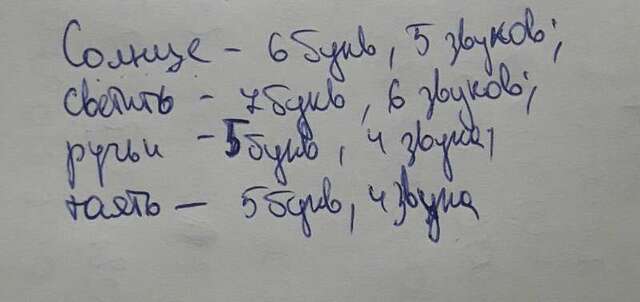 Солнце - 6 букв, 5 звуков;
светить - 7 букв, 6 звуков;
ручьи - 5 букв, 4 звука,
таять - 5 букв, 4 звука